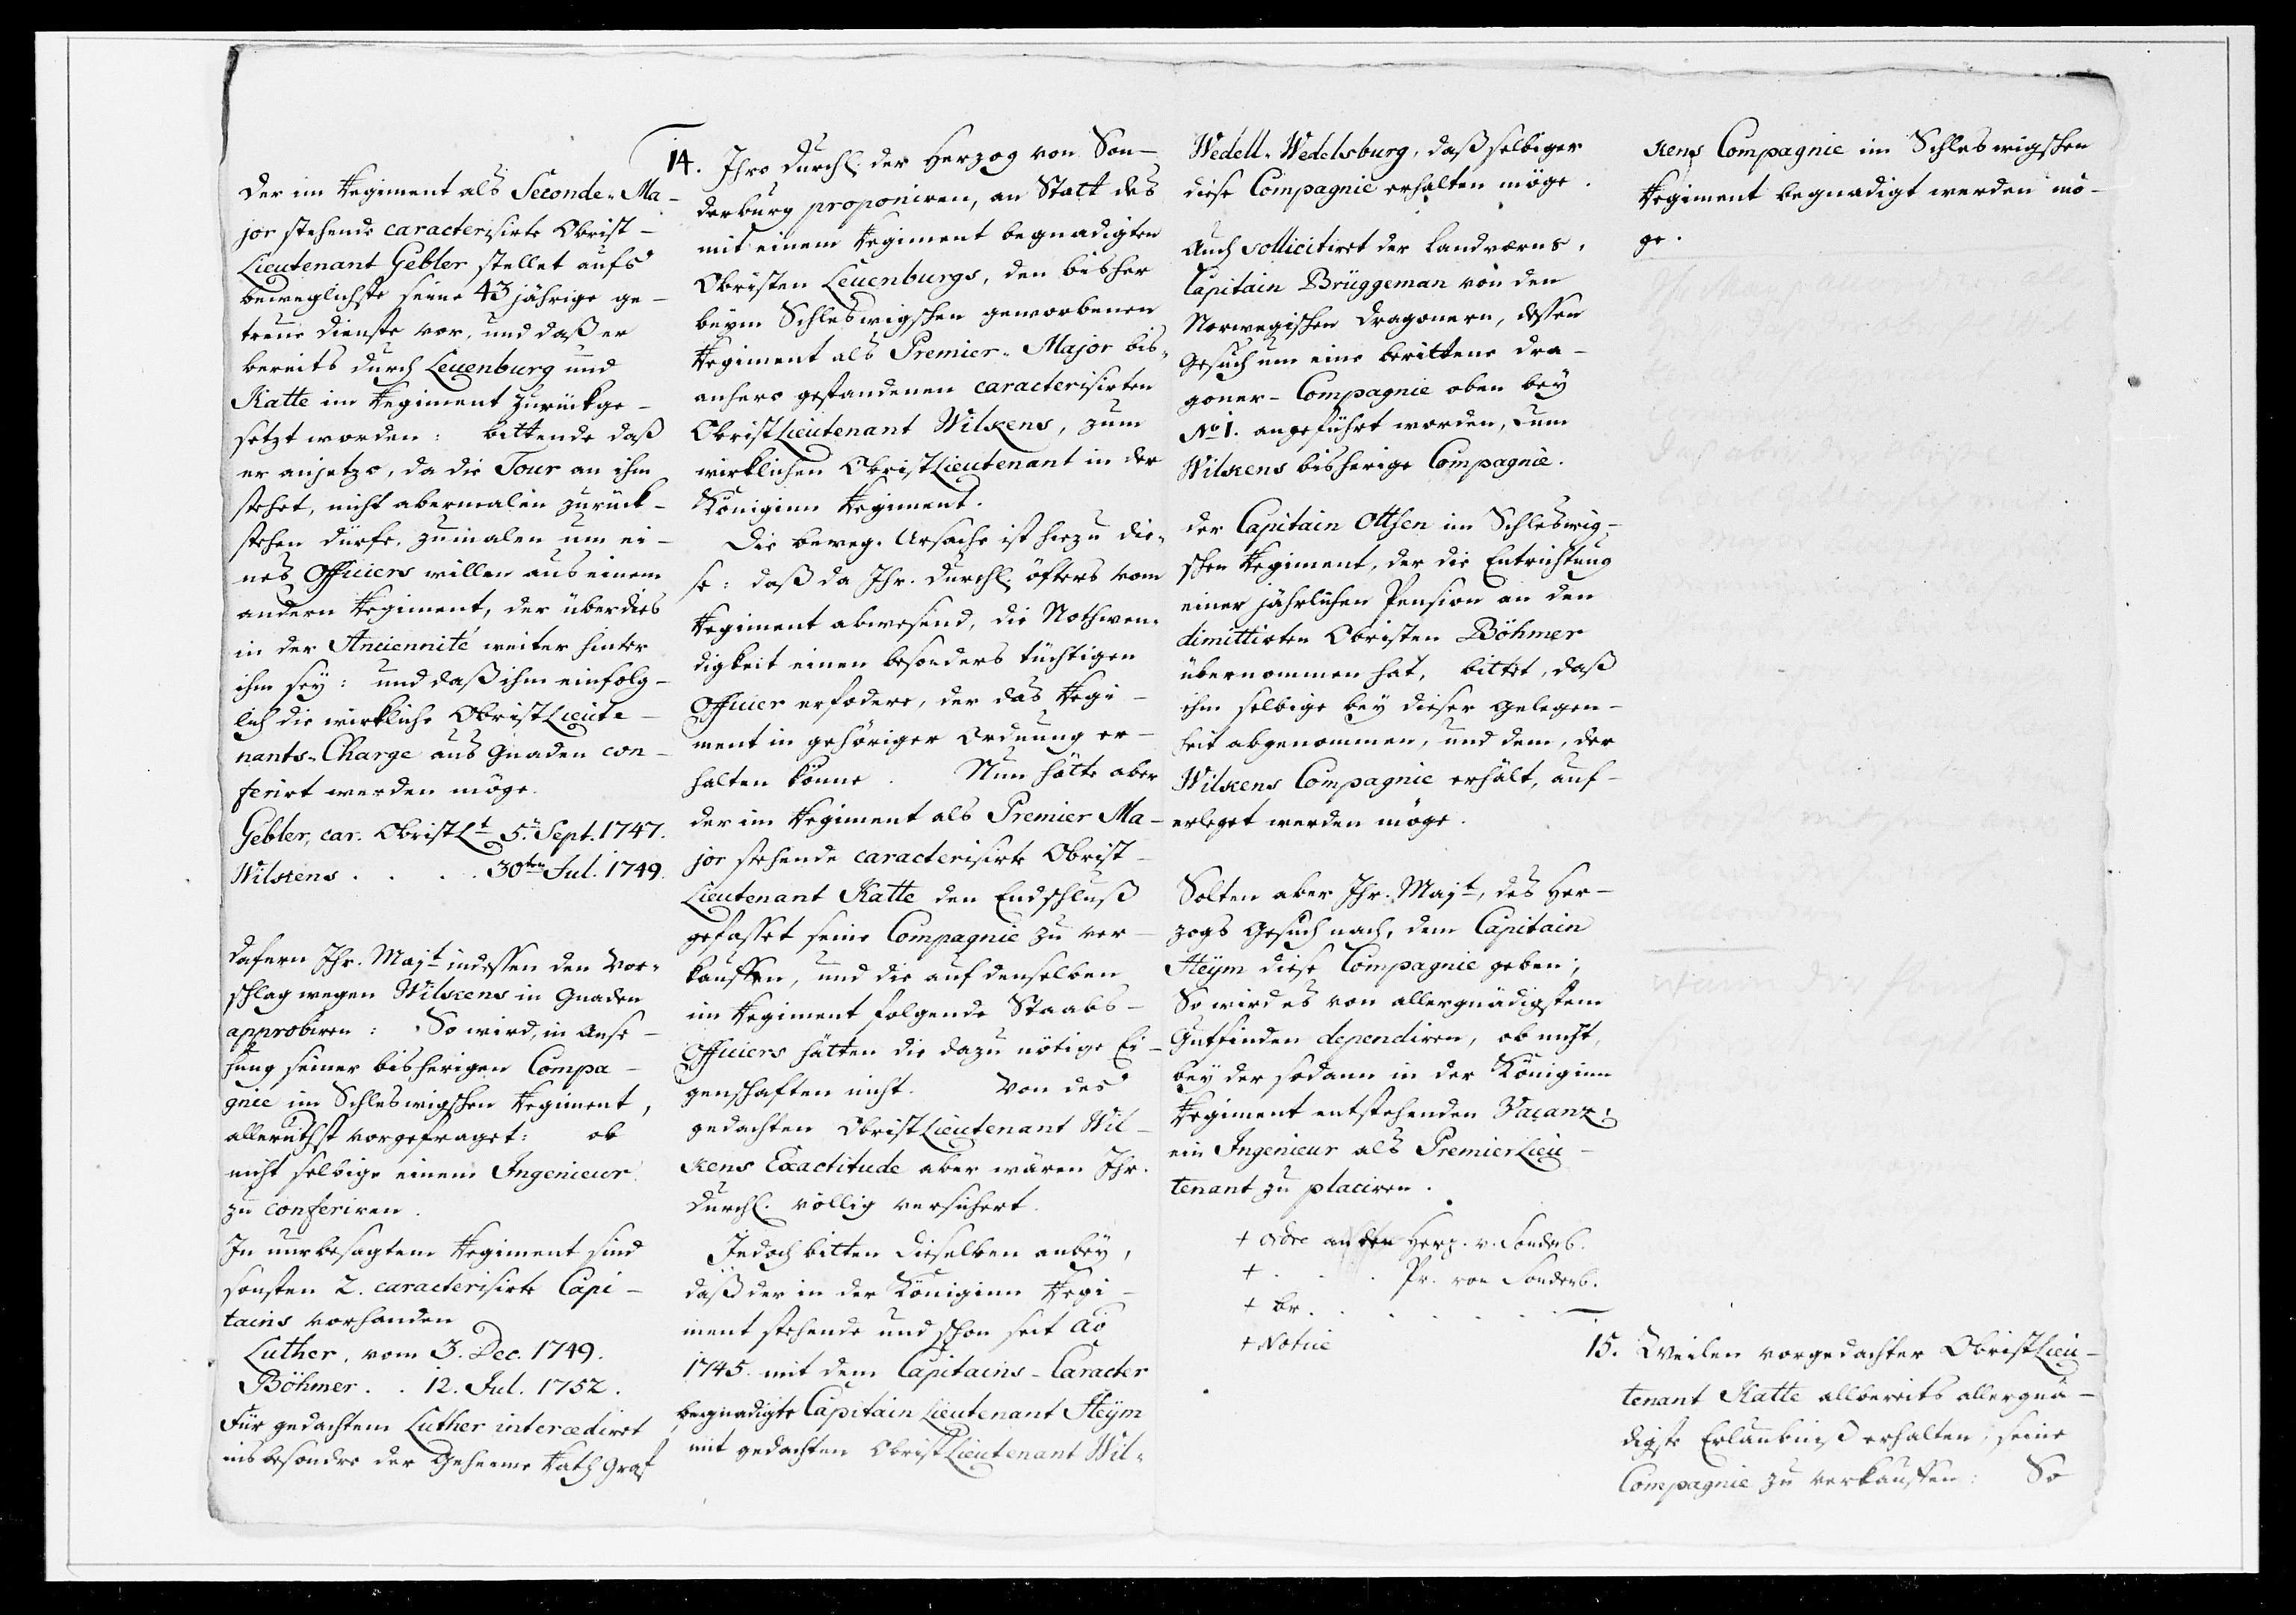 Der im Regiment als Seconde-Ma-
jor stehende caracterisirte Obrist-
Lieutenant Gebler stellet aufs
beweglichste seine 43jährige ge-
treue Dienste vor, und daß er
bereits durch Leuenburg und
Katte im Regiment zurückge-
setzt worden: bittende daß
er anjetzo, da die Tour an ihm
stehet, nicht abermalen zurück-
stehen dürfe, zumalen um ei-
nes Officiers willen aus einem
andern Regiment, der überdies
in der Anciennité weiter hinter
ihm sey: und daß ihm einfolg-
lich die wirkliche ObristLieute-
nants-Charge aus Gnaden con-
ferirt werden möge.
Gebler, car. ObristLt 5. Sept. 1747.
Wilkens . . . . 30ten Jul. 1749.
Dafern Ihr. Majt indessen den Vor-
schlag wegen Wilkens in Gnaden
approbiren: So wird, in Anse-
hung seiner bisherigen Compa-
gnie im Schleswigschen Regiment,
alleruthst vorgefraget: ob
nicht selbige einem Ingenieur
zu conferiren.
In nurbesagtem Regiment sind
sonsten 2. caracterisirte Capi-
tains vorhanden
Luther, vom 3. Dec. 1749.
Böhmer . . 12. Jul. 1752.
Für gedachtem Luther intercediret
insbesondre der Geheime Rath Graf
14. Ihro Durchl. der Herzog von Son-
derburg proponiren, an Statt des
mit einem Regiment begnadigten
Obristen Leuenburgs, den bisher
beym Schleswigschen geworbenen
Regiment als Premier-Major bis-
anhero gestandenen caracterisirten
ObristLieutenant Wilkens, zum
wirklichen ObristLieutenant in der
Königinn Regiment.
Die beweg. Ursache ist hiezu die-
se: daß da Ihr. Durchl. öfters vom
Regiment abwesend, die Nothwen-
digkeit einen besonders tüchtigen
Officier erfodere, der das Regi-
ment in gehöriger Ordnung er-
halten könne. Nun hätte aber
der im Regiment als Premier Ma-
jor stehende caracterisirte Obrist-
Lieutenant Katte den Endschluß
gefasset seine Compagnie zu ver-
kauffen, und die auf denselben
im Regiment folgende Staabs-
Officiers hätten die dazu nötige Ei-
genschaften nicht. Von des
gedachten ObristLieutenant Wil-
kens Exactitude aber wären Ihr.
Durchl. völlig versichert.
Jedoch bitten Dieselben anbey,
daß der in der Königinn Regi-
ment stehende und schon seit Ao
1745. mit dem Capitains-Caracter
begnadigte Capitain Lieutenant Heÿm
mit gedachten ObristLieutenant Wil-
kens Compagnie im Schleswigschen
Regiment begnadigt werden mö-
ge.
Wedell-Wedelsburg, daß selbiger
diese Compagnie erhalten möge.
Auch sollicitiret der Landværns-
Capitain Brüggeman von den
Norwegischen Dragonern, dessen
Gesuch um eine berittene Dra-
goner-Compagnie oben bey
No 1. angeführt worden, um
Wilkens bisherige Compagnie.
Der Capitain Ottsen im Schleswig-
schen Regiment, der die Entrichtung
einer jährlichen Pension an den
dimittirten Obristen Böhmer
übernommen hat, bittet, daß
ihm selbige bey dieser Gelegen-
heit abgenommen, und dem, der
Wilkens Compagnie erhält, auf-
erleget werden möge.
Solten aber Ihr. Majt, des Her-
zogs Gesuch nach, dem Capitain
Heÿm diese Compagnie geben;
So wird es von allergnädigstem
Gutfinden dependiren, ob nicht,
bey der sodann in der Königinn
Regiment entstehenden Vacanz,
ein Ingenieur als PremierLieu-
tenant zu placiren.
+ Ordre an den Herz. v. Sonderb.
+ . . . Pr. von Sonderb.
+ Br. . . . . .
+ Notice
15. Weilen vorgedachter ObristLieu-
tenant Katte allbereits allergnä-
digste Erlaubniß erhalten, seine
Compagnie zu verkauffen: So